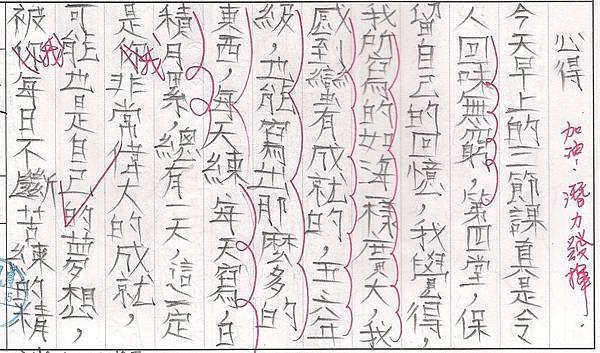 心得
加油!潛力發揮.
今天早上的三節課真是令
人回味無窮,第四堂,保
留自己的回憶,我覺得,
我所寫的如海一樣廣大,我
感到蠻有成就的,五六年
級,也能寫出那麼多的
東西,每天練,每天寫,日
積月累,總有一天,這一定
是你我非常偉大的成就,
可能也是自己的夢想,
被你我每日不斷苦練的精